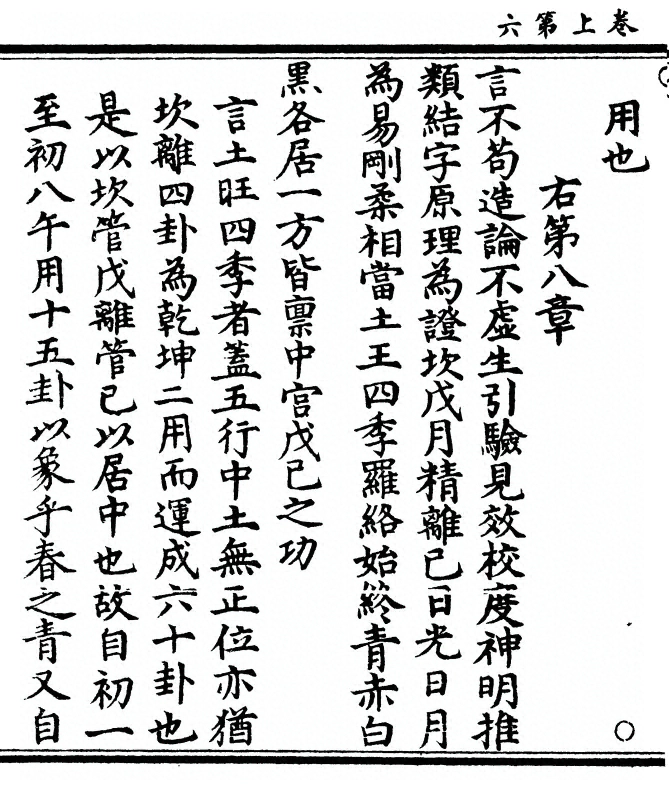 卷上第六
用也
右第八章
言不苟造論不虛生引驗見效校度神明推
類結字原理為證坎戊月精離已日光日月
為易剛柔相當土王四季羅絡始終青赤白
黑各居一方皆禀中宮戊已之功
言土旺四季者蓋五行中土無正位亦猶
坎離四卦為乾坤二用而運成六十卦也
是以坎管戊離管已以居中也故自初一
至初八午用十五卦以象乎春之青又自